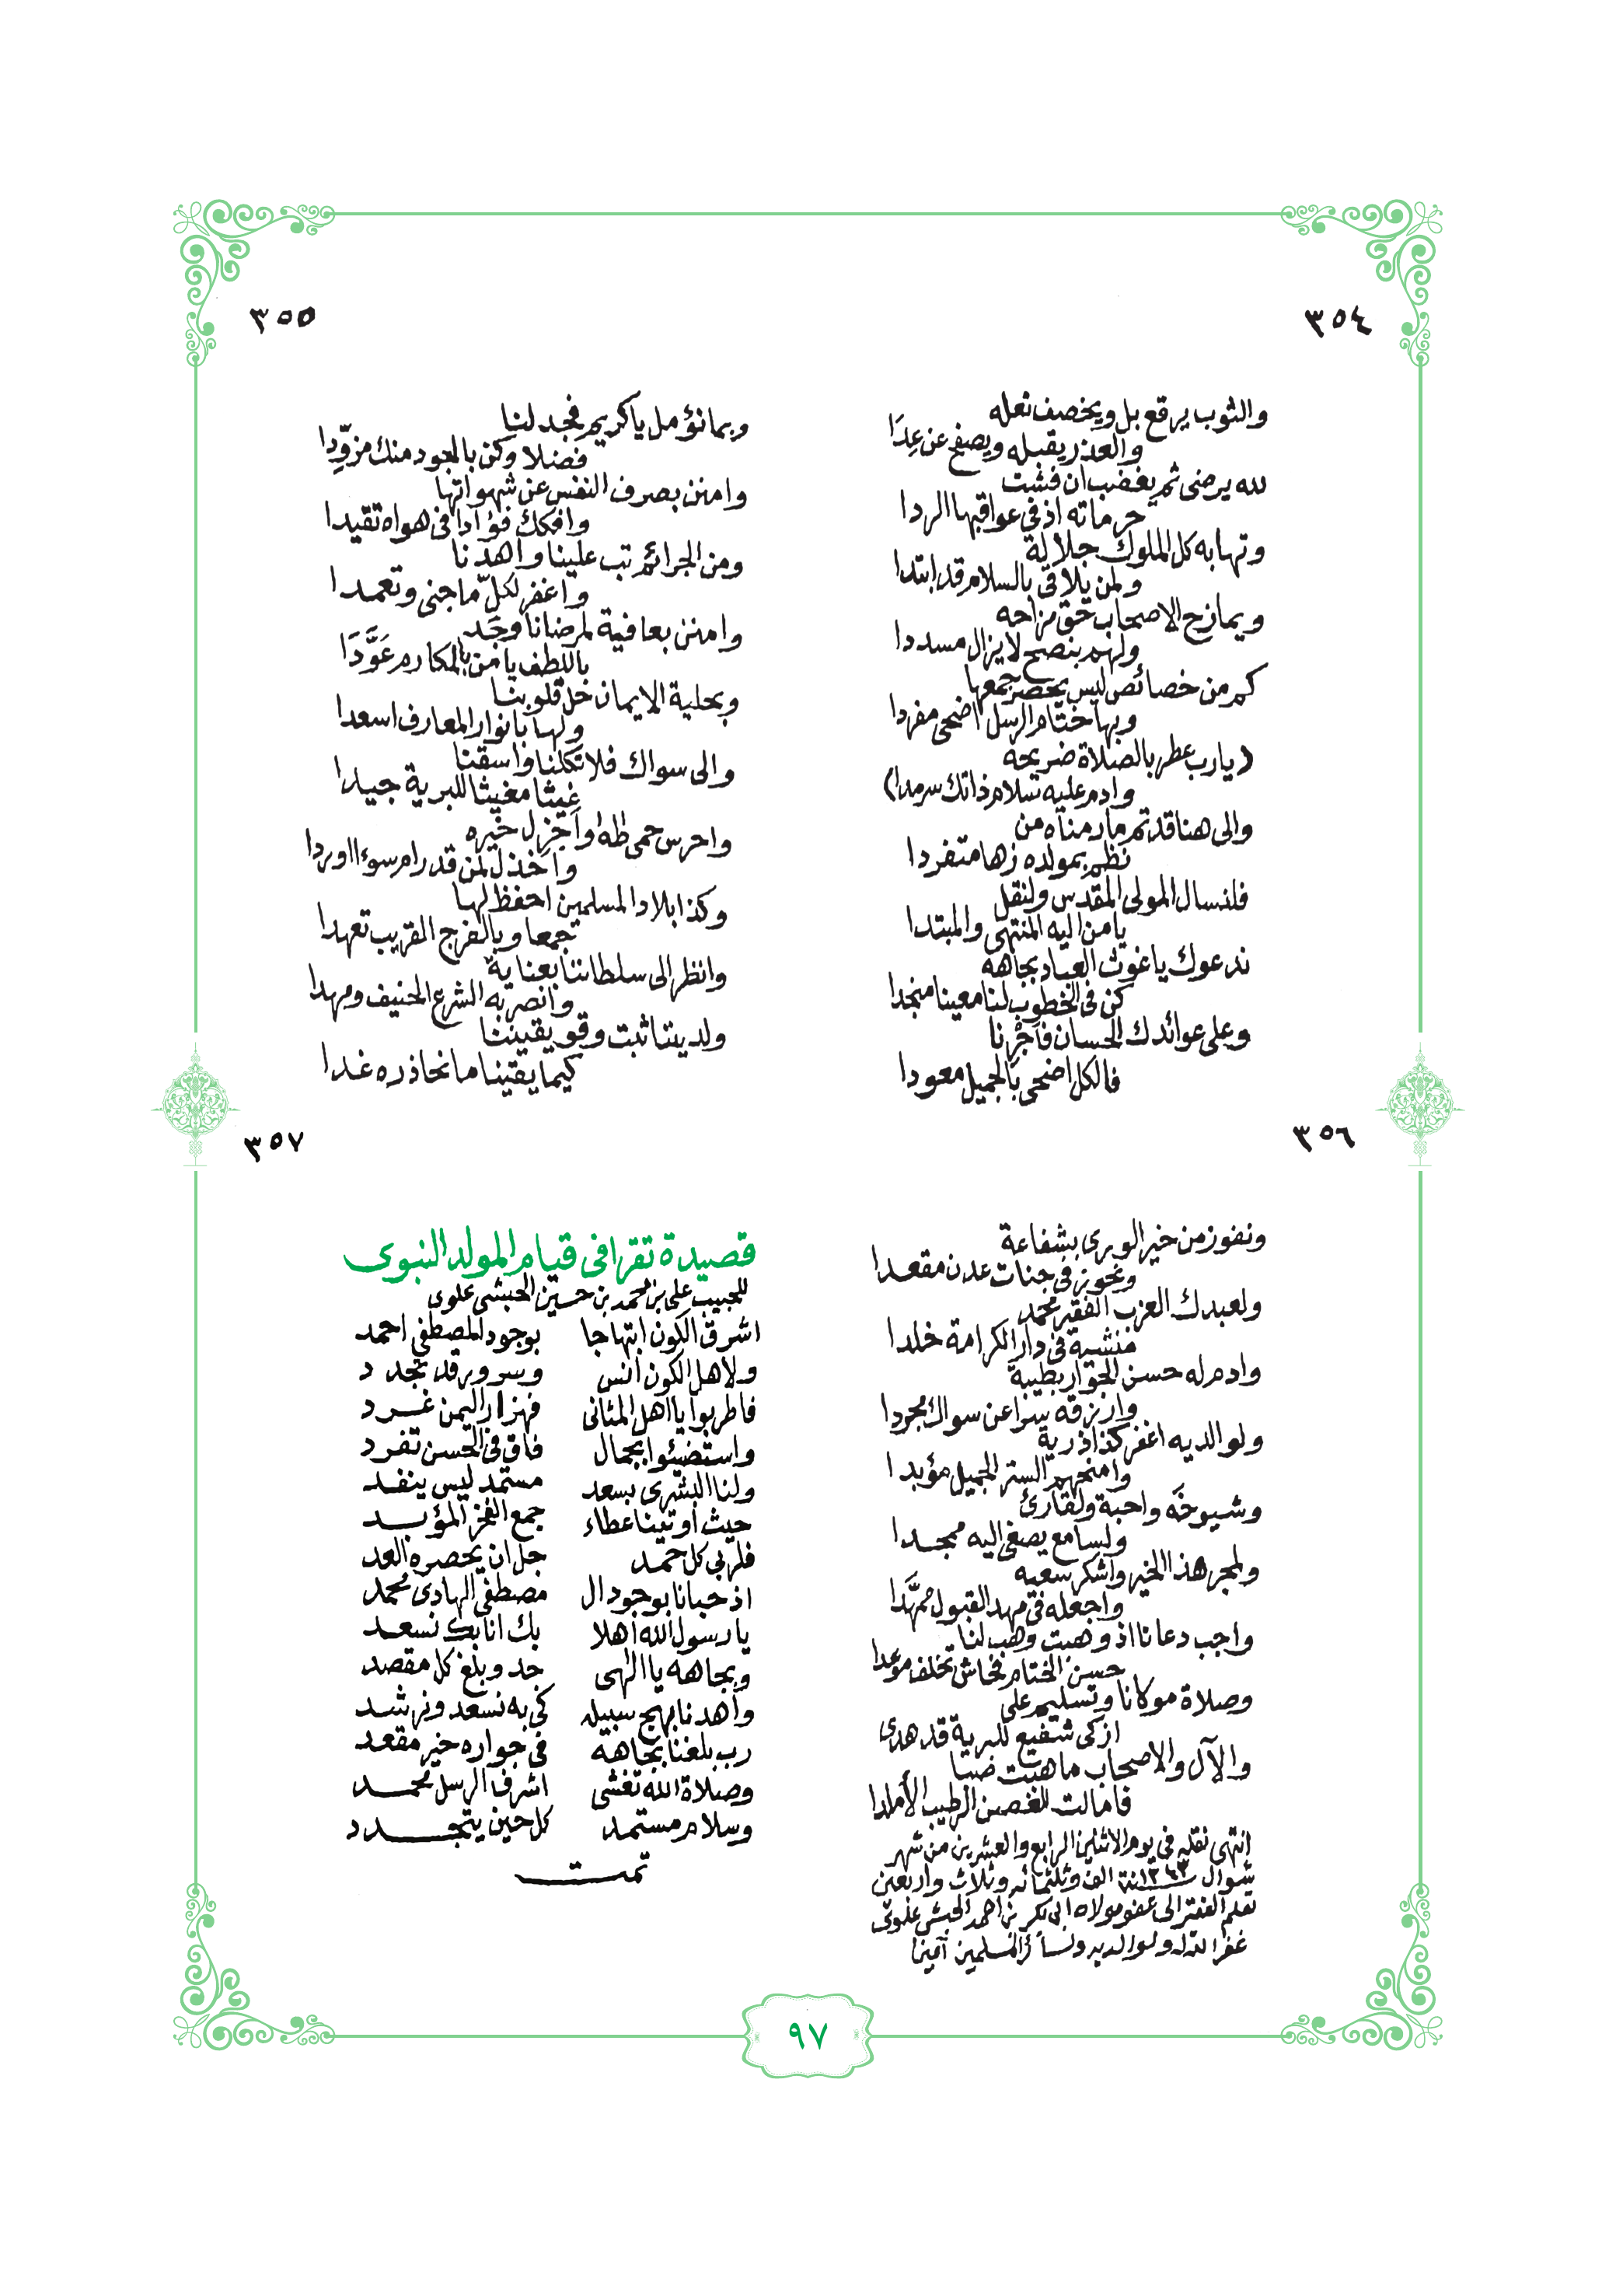 ٣٥٤
والثوب يرقع بل ويخصف نعله
والعذر يقبله ويصفح عن عِدَا
لله يرضى ثم يغضب ان فشت
حرماته اذ في عواقبها الردا
وتهابه كل الملوك جلالة
ولمن يلاقي بالسلام قد ابتدا
ويمازح الاصحاب حق مزاحه
ولهم بنصح لا يزال مسددا
كم من خصائص ليس يحصر جمعها
وبها ختام الرسل اضحى مفردا
(يارب عطر بالصلاة ضريحه
وادم عليه سلام ذاتك سرمدا)
والى هنا قد تم مارمناه من
نظم بمولده زها متفردا
فلنسال المولى المقدس ولنقل
يا من اليه المنتهى والمبتدا
ندعوك يا غوث العباد بجاهه
كن في الخطوب لنا معينا منجدا
وعلى عوائدك الحسان فأجْرِنا
فالكل اضحى بالجميل معودا
٣٥٥
وبما نؤمل يا كريم فجد لنا
فضلا وكن بالجود منك مزوِّدا
وامنن بصرف النفس عن شهواتها
وافكك فؤادا في هواه تقيدا
ومن الجرائم تب علينا واهدنا
واغفر لكلّ ما جنى وتعمدا
وامنن بعافية لمرضانا وجُد
باللطف يا من بالمكارم عَوَّدَا
وبحلية الايمان حل قلوبنا
ولها بانوار المعارف اسعدا
والى سواك فلا تكلنا واسقنا
غيثا مغيثا للبرية جيدا
واحرس حمى طه واجزل خيره
واخذل لمن قد رام سوءا اوردا
وكذا بلاد المسلمين احفظ لها
جمعا وبالفرج القريب تعهدا
وانظر الى سلطاننا بعناية
وانصر به الشرع الحنيف ومهدا
ولديننا ثبت وقو يقيننا
كيما يقينا ما نحاذره غدا
٣٥٦
ونفوز من خير الورى بشفاعة
ونحوز في جنات عدن مقعدا
ولعبدك العزب الفقير محمد
منشيه في دار الكرامة خلدا
وادم له حسن الجوار بطيبة
وارزقه سرا عن سواك مجردا
ولوالديه اغفر كذا ذرية
وامنحهم الستر الجميل مؤبدا
وشيوخه واحبة ولقارئ
ولسامع يصغى اليه ممجدا
ولمجر هذا الخير واشكر سعيه
واجعله في مهد القبول ممهَّدا
واجب دعانا اذ وهبت وهب لنا
حسن الختام فحاش تخلف موعدا
وصلاة مولانا وتسليم على
ازكى شفيع للبرية قد هدى
والآل والاصحاب ما هبت صبا
فامالت الغصن الرطيب الأملدا
انتهى نقله في يوم الاثنين الرابع والعشرين من شهر
شوال سنة ١٣٤٣ الف وثلثمائه وثلاث واربعين
بقلم الفقير الى عفو مولاه ابى بكر بن احمد الحبشي علوى
غفر الله له ولوالديه ولسائر المسلمين آمين
٣٥٧
قصيدة تقرا في قيام المولد النبوى
للحبيب على بن محمد بن حسين الحبشي علوى
اشرق الكون ابتهاجا بوجود المصطفى احمد
ولاهل الكون انس وسرور قد تجدد
فاطربوا يا اهل المثانى فهزار اليمن غرد
واستضيئوا بجمال فاق في الحسن تفرد
ولنا البشرى بسعد مستمد ليس ينفد
حيث أوتينا عطاء جمع الفخر المؤبد
فلربي كل حمد جل ان يحصره العد
اذ حبانا بوجود ال مصطفى الهادى محمد
يا رسول الله أهلا بك انا بك نسعد
وبجاهه يا الهى جد وبلغ كل مقصد
واهدنا نهج سبيله كي به نسعد ونرشد
رب بلغنا بجاهه في جواره خير مقعد
وصلاة الله تغشى اشرف الرسل محمد
وسلام مستمد كل حين يتجدد
تمت
٩٧